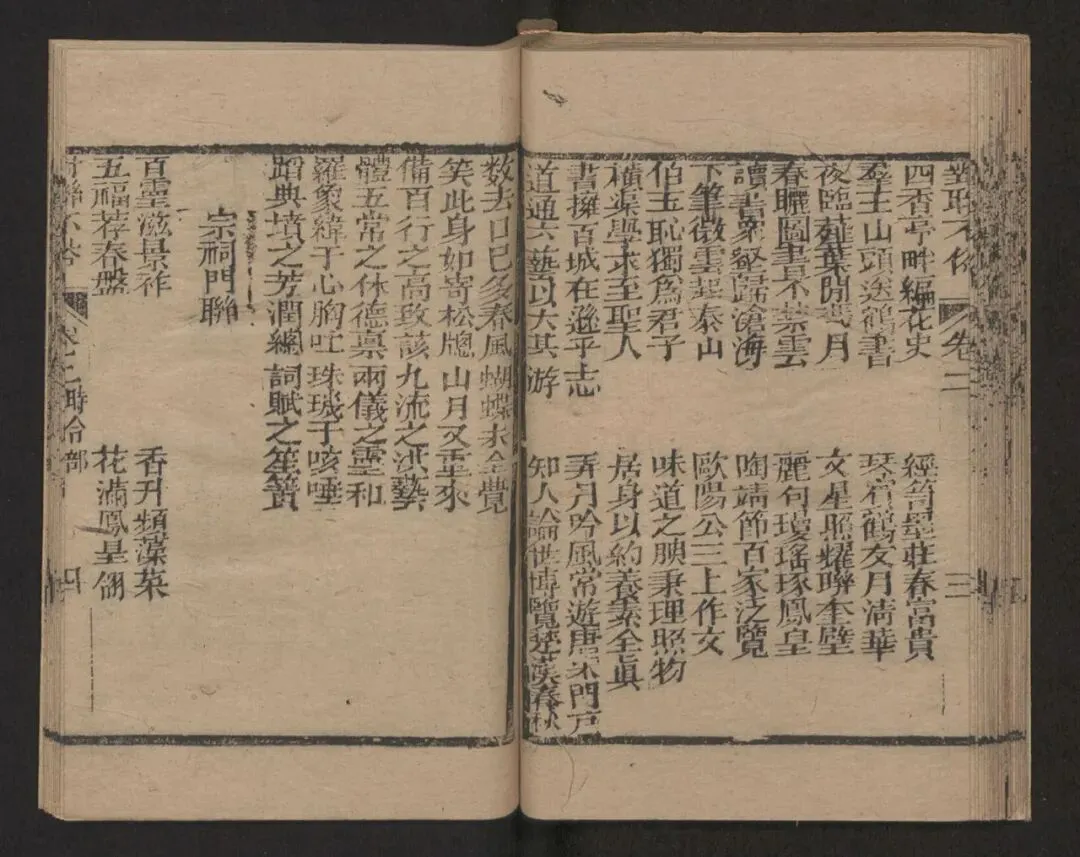 卷二 三
四香亭畔編花史 經笥墨莊春富貴
羣玉山頭送鶴書 琴君鶴友月淸華
夜臨薤葉閒裁月 文星照耀聯奎壁
春曬圖書不禁雲 麗句瓊瑤琢鳳皇
讀書眾壑歸滄海 陶靖節百家泛覽
下筆微雲起泰山 歐陽公三上作文
伯玉恥獨爲君子 味道之腴秉理照物
橫渠學求至聖人 居身以約養素全眞
書擁百城在遜乎志 弄月吟風常遊唐宋門戶
道通六藝以大其游 知人論世博覽楚漢春秋
数去日已多春風蝴蝶未全覺
笑此身如寄松牕山月又重來
備百行之高致該九流之洪藝
體五常之休德禀兩儀之靈和
羅象緯于心胸吐珠璣于咳唾
蹈典墳之芳潤纘詞賦之笙簧
宗祠門聯
百靈滋景祚 香升蘋藻菜
五福荐春盤 花滿鳳皇翎
卷之二時令部 四